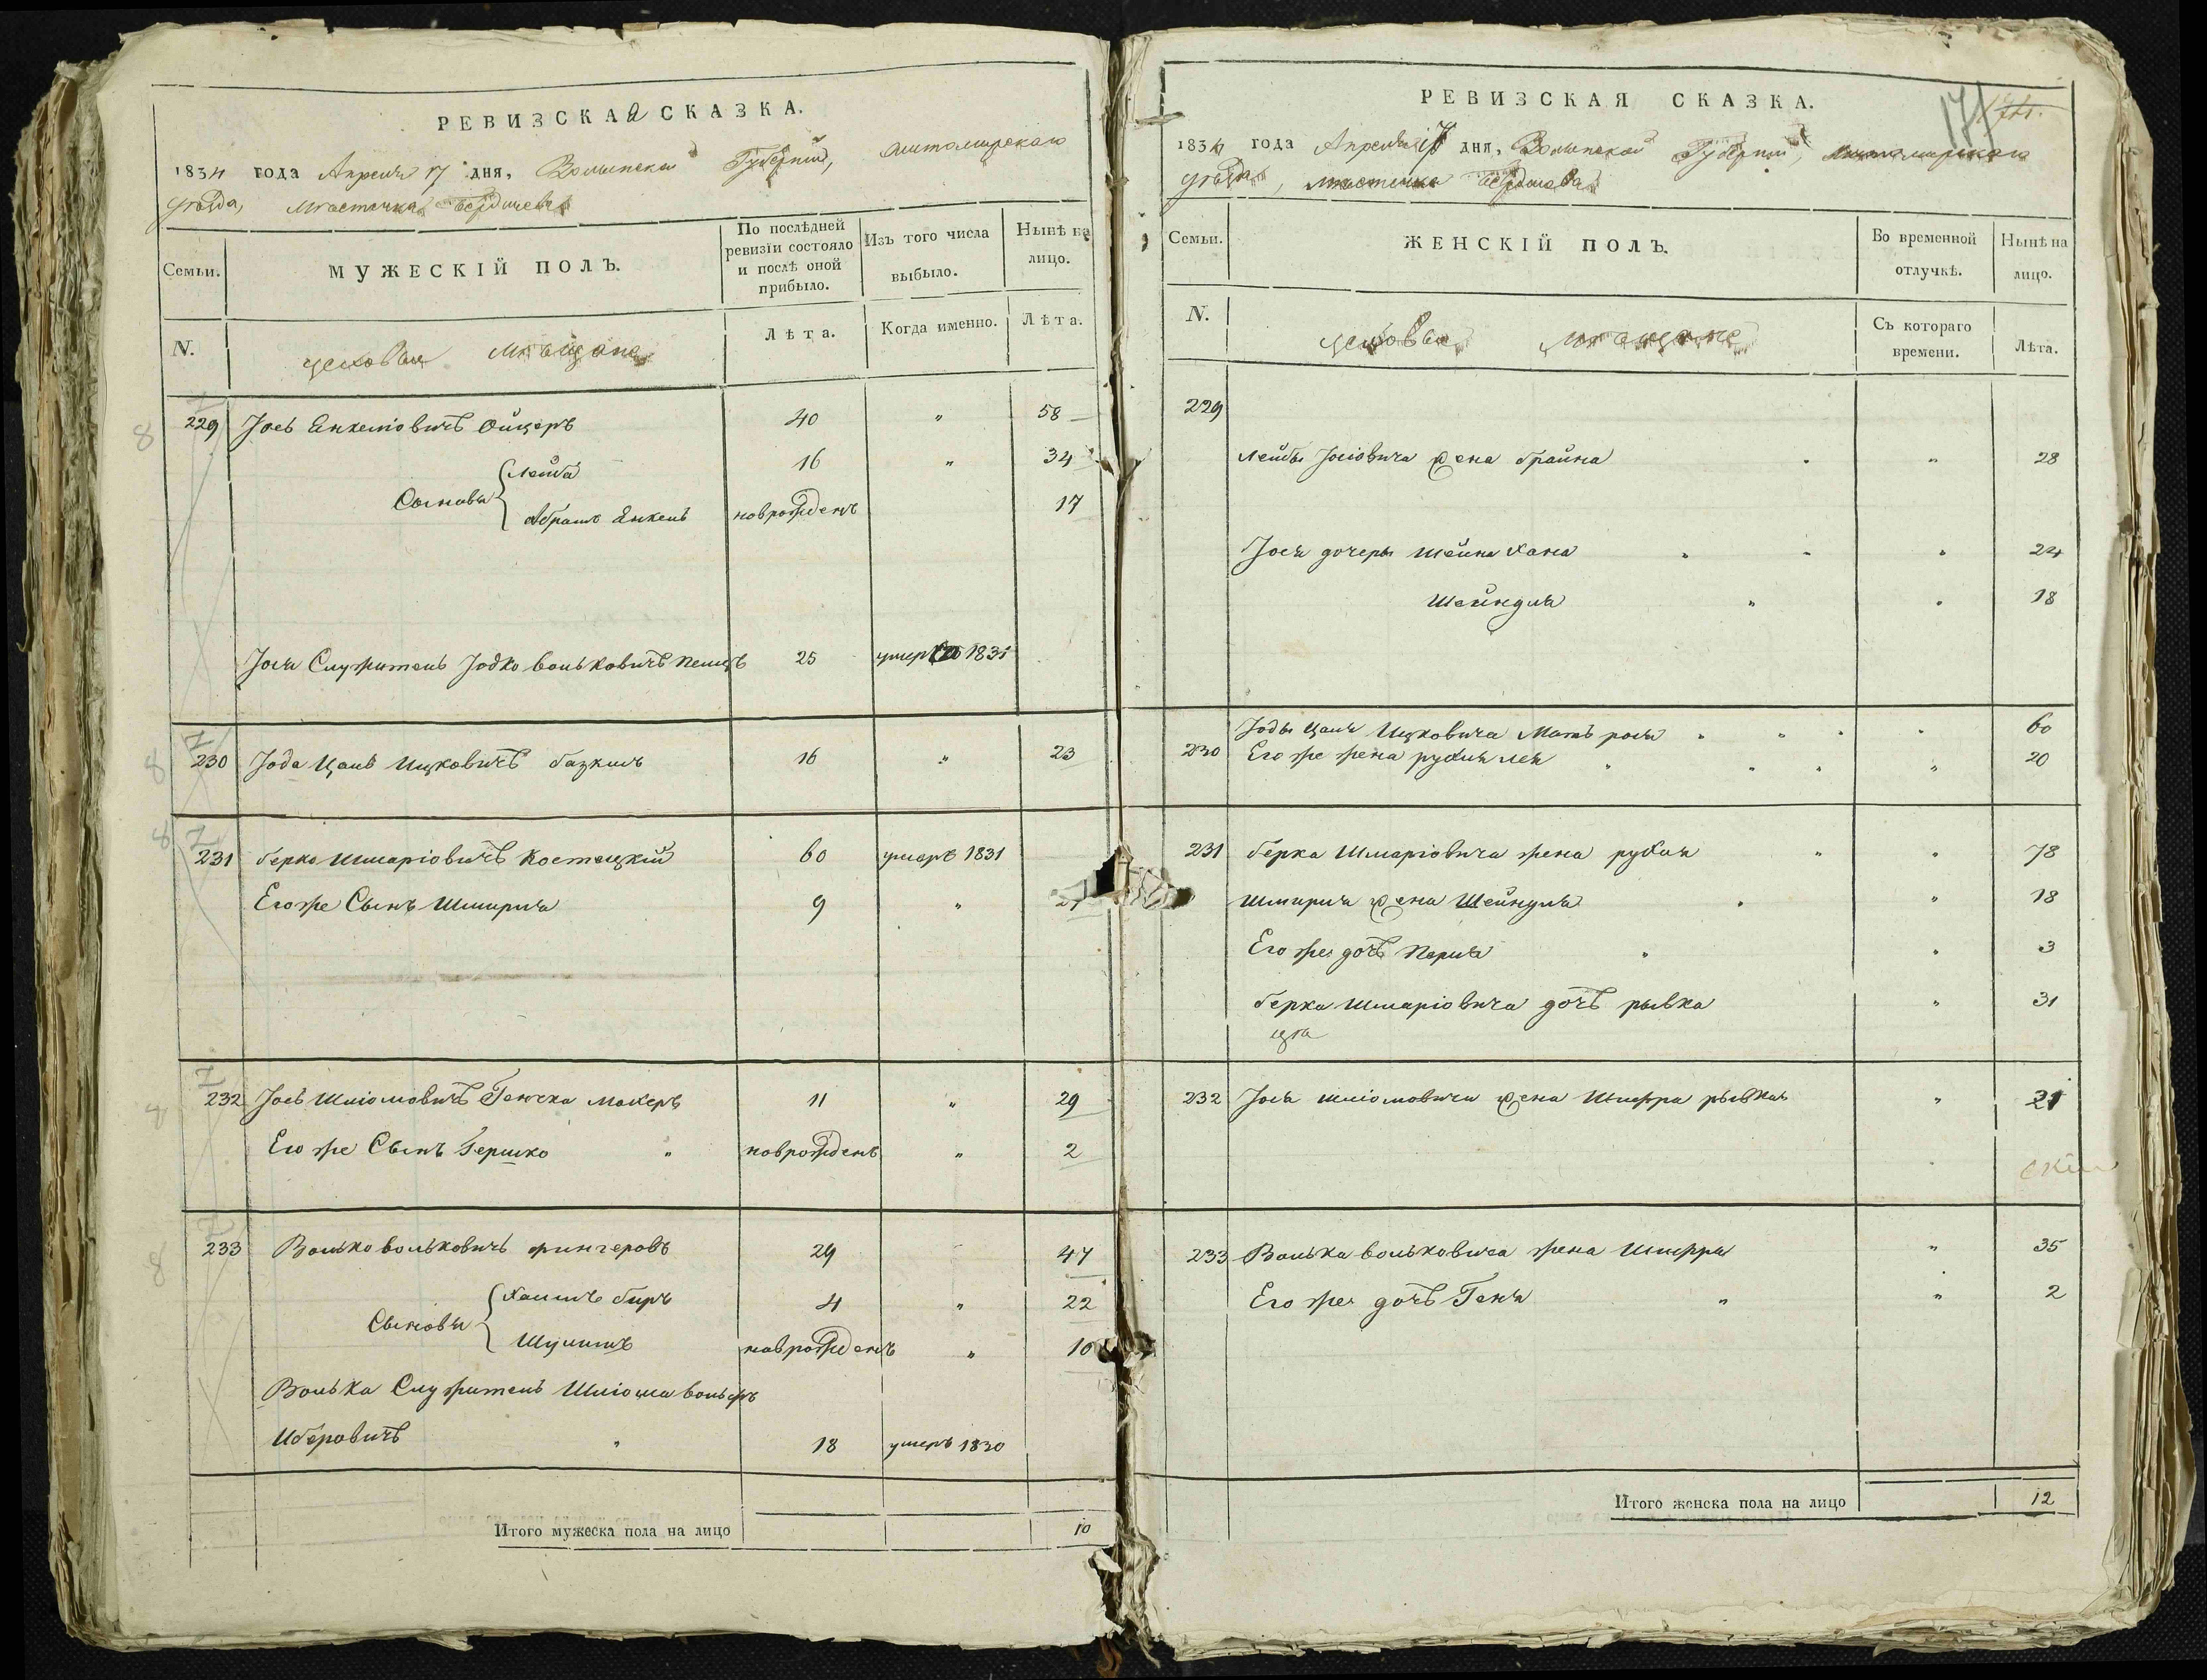 РЕВИЗСКАЯ СКАЗКА.
1834 года Апреля 17 дня, Волынской Губернии, Житомирскаго
уѣзда, мѣстечка Бердичева
Семьи.
МУЖЕСКІЙ ПОЛЪ.
По послѣдней
ревизіи состояло
и послѣ оной
прибыло.
Изъ того числа
выбыло.
Нынѣ на
лицо.
N.
цеховые мѣщане
Лѣта.
Когда именно.
Лѣта.
229 Іось Янкеліовичъ Ойцеръ 40 " 58
Сыновья Лейба 16 " 34
Абрамъ Янкель новрожденъ 17
Іося Служитель Іодко Вольковичъ 25 умеръ 1831
230 Іода Цаль Ицковичъ 16 " 23
231 Берко Шмаріовичъ Костецкій 60 умеръ 1831
Егоже Сынъ Шмирыля 9 "
232 Іось Шліомовичъ Макеръ 11 " 29
Его же Сынъ Гершко " новрожденъ " 2
233 Волько Вольковичъ Фингеровъ 29 47
Сыновья Хаимъ Биръ 4 " 22
Шулимъ новрожденъ " 10
Волька Служитель Шліома Вольфъ
Иберовичъ " 18 умеръ 1830
Итого мужеска пола на лицо 10
171
РЕВИЗСКАЯ СКАЗКА.
1834 года Апреля 17 дня, Волынской Губернии, Житомирскаго
уѣзда, мѣстечка Бердичева
Семьи.
ЖЕНСКІЙ ПОЛЪ.
Во временной
отлучкѣ.
Нынѣ на
лицо.
N.
цеховые мѣщане
Съ котораго
времени.
Лѣта.
229
Лейбы Іосіовича жена Брайна " " 28
Іося дочеры Шейна Хана " " " 24
Шейндля " " 18
Іоды Цаля Ицковича Мать рося " " " " 60
230 Его же жена рухля лея " " " " 20
231 Берка Шмаріовича жена рухля " " 78
Шмирыля жена Шейндля " " 18
Его же дочъ Перля " " 3
Берка Шмаріовича дочъ рывка " 31
232 Іося Шліомовича жена Шифра рывка " 21
233 Волька Вольковича жена Шифра " 35
Его же дочъ Геня " " 2
Итого женска пола на лицо 12